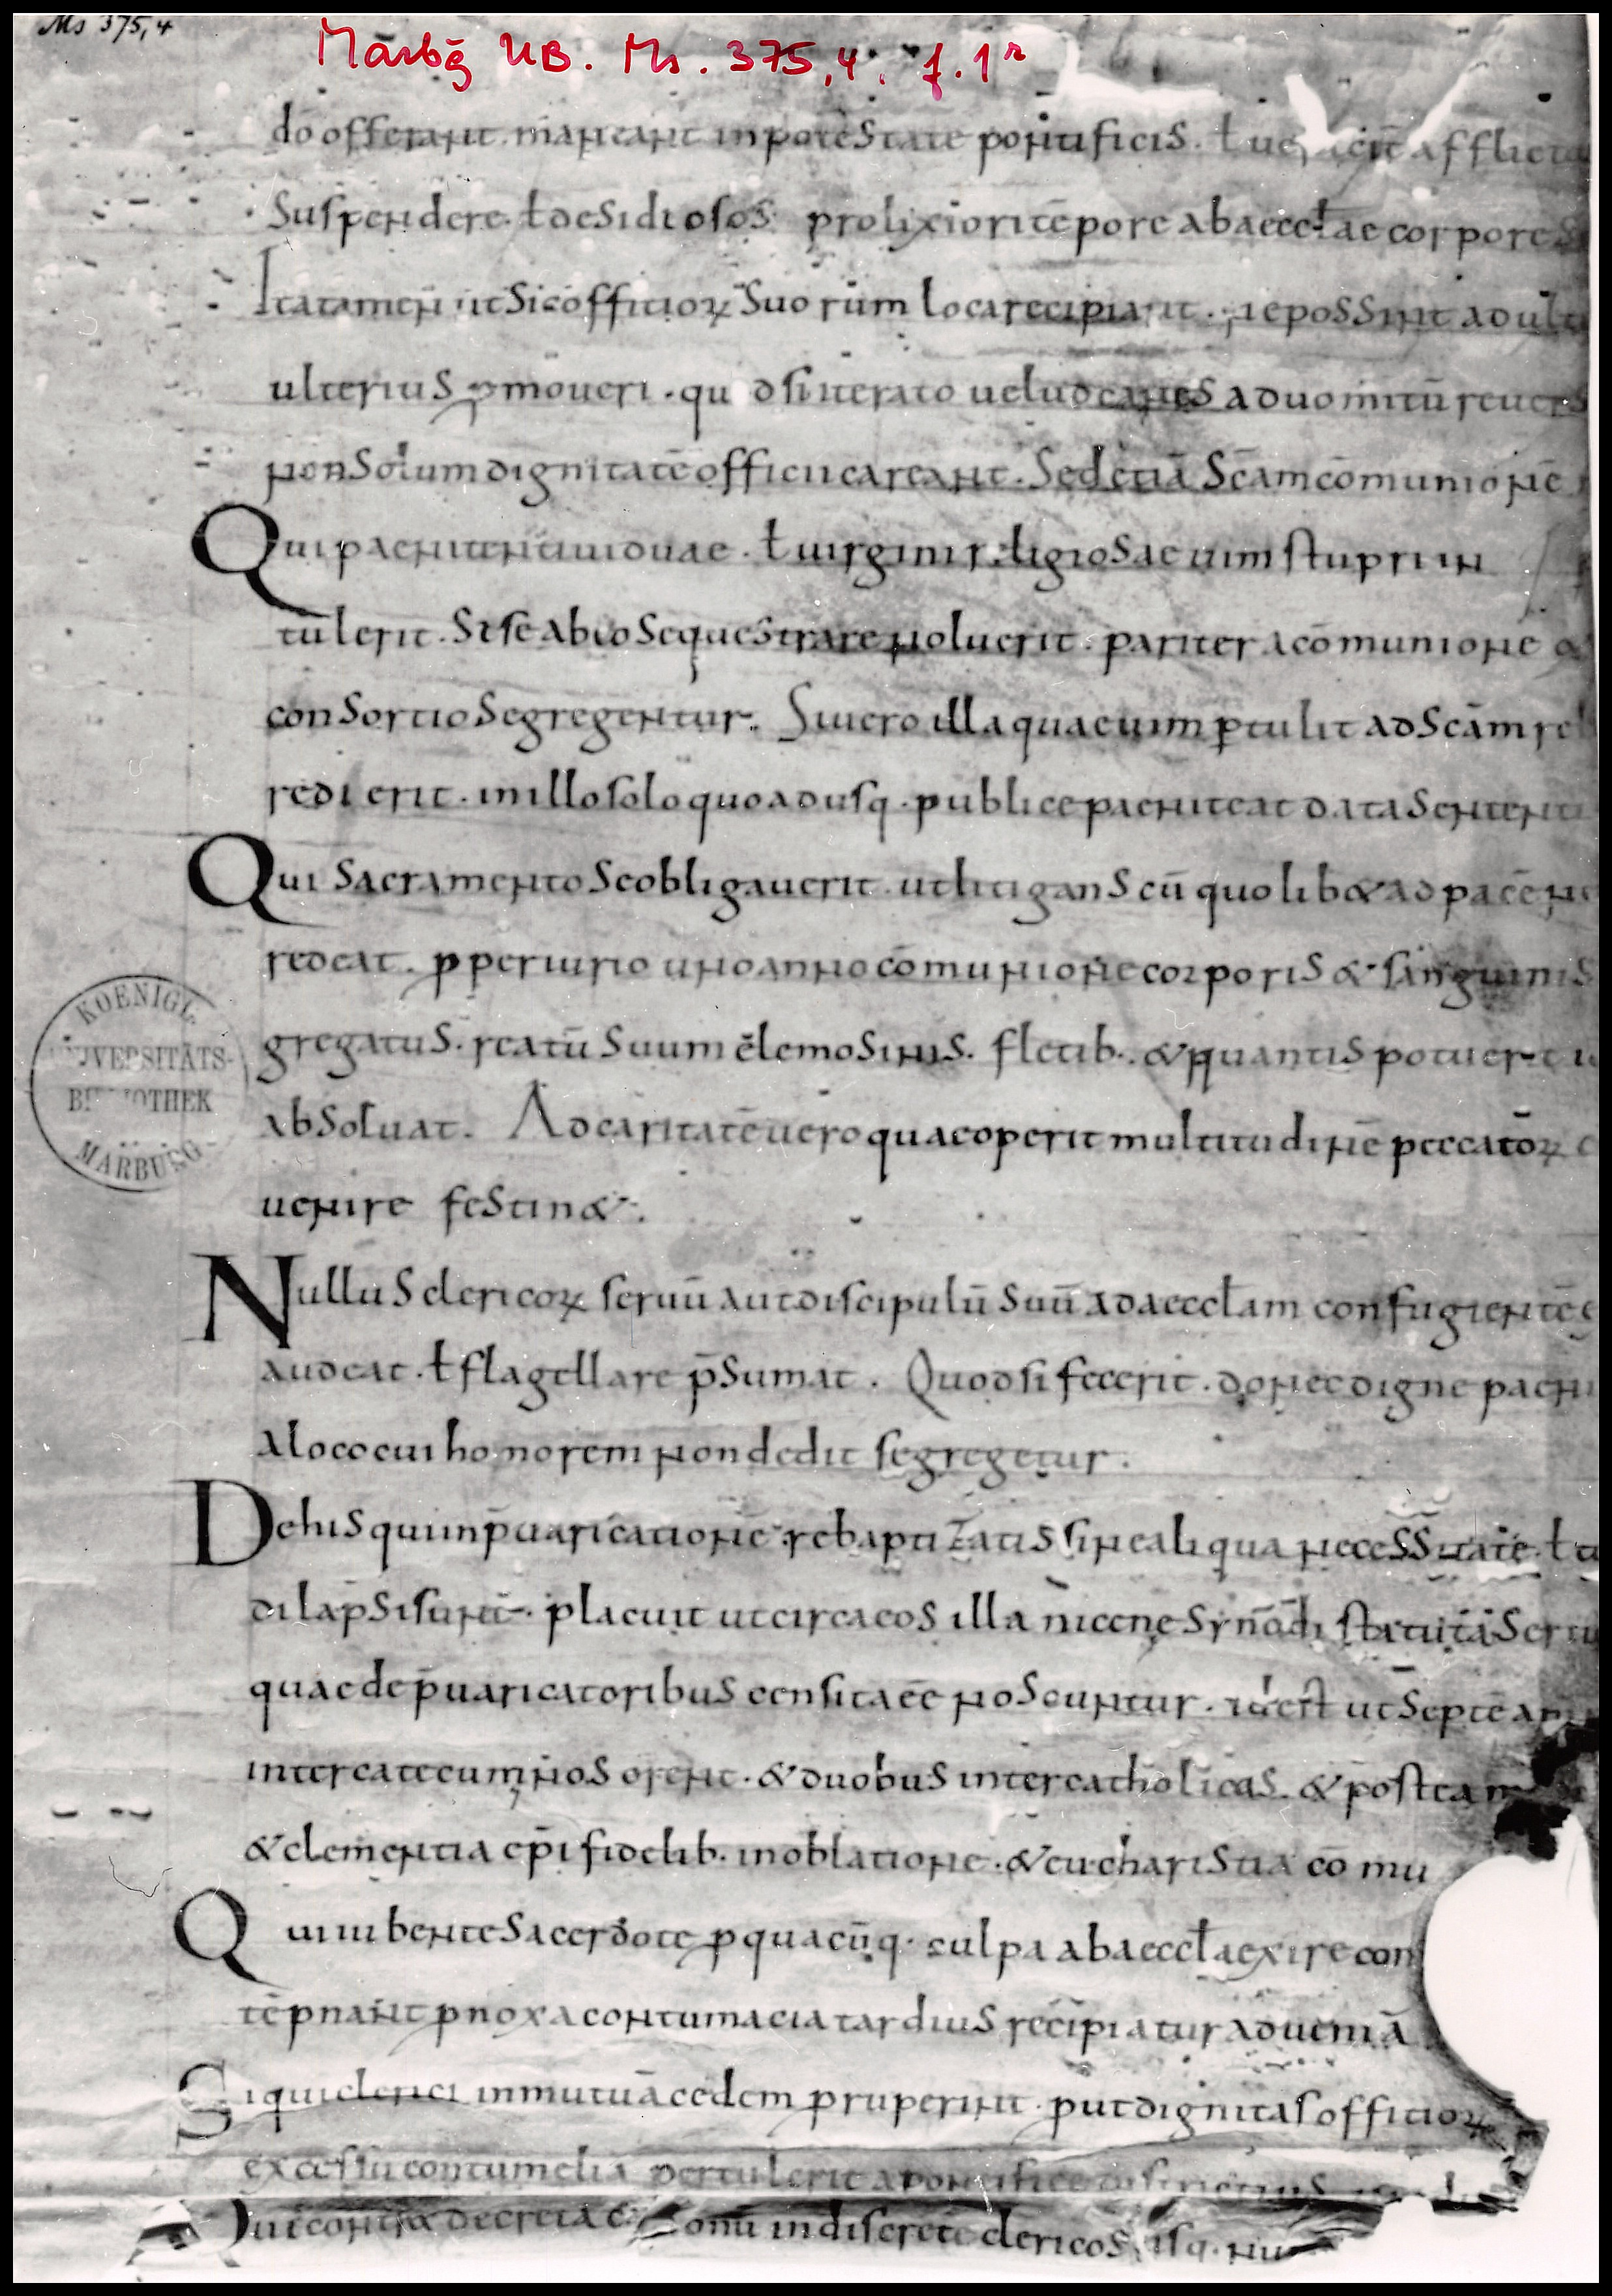 Ms 375,4
Marbg UB. Ms. 375,4. f. 1r
do offerant. maneant in potestate pontificis. ł afflicta
suspendere. ł desidiosos prolixiori tēpore ab aeccłae corpore
Ita tamen ut sic offitioꝝ suorum loca recipiant. ne possint ad
ulterius ꝓmoueri. quod si iterato uelud canes ad uomitū
non solum dignitatē officii careant. Sed etiā Scām cōmunionē
Qui paenitenti uiduae. ł uirgini religiosae uim stupri in
tulerit. Si se ab eo sequestrare noluerit. pariter a cōmunione &
consortio segregentur. Si uero illa quae uim ꝑtulit ad Scām
redierit. in illo solo quoadusq. publice paeniteat data
Qui Sacramento se obligauerit. ut litigans cū quolib& ad pacē
redeat. ꝓ periurio uno anno cōmunione corporis & sanguinis
gregatus. reatū suum elemosinis. fletib. & quantis potuerit
absoluat. Ad caritatē uero quae operit multitudinē peccatoꝝ
uenire festin&.
Nullus clericoꝝ seruū aut discipulū suū ad aeccłam confugientē
audeat. ł flagellare p̄sumat. Quod si fecerit. donec digne
a loco cui honorem non dedit segregetur.
De his qui in p̄uaricationē rebaptizatis sine aliqua necessitate. ł
dilapsi sunt. placuit ut circa eos illa nicene synodi statuta
quae de p̄uaricatoribus censita eē noscuntur. id est ut septē
inter catecuminos orent. & duobus inter catholicos. & postea
& clementia ep̄i fidelib. in oblatione. & eucharistia cō mu
Qui iubente sacerdote ꝓ quacūq. culpa ab aeccła exire con
tēpnant ꝓ noxa contumacia tardius recipiatur ad ueniā
Si qui clerici in mutuā cedem ꝓruperint. ꝓut dignitas offitioꝝ
excessu contumelia pertulerit a pontifice districtius
Qui contra decreta indiscrete clericos
KOENIGL.
UNIVERSITÄTS-
BIBLIOTHEK
MARBURG